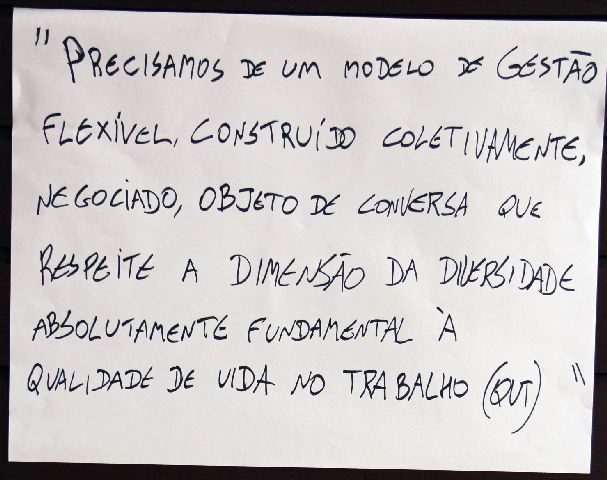 "PRECISAMOS DE UM MODELO DE GESTÃO
FLEXÍVEL, CONSTRUÍDO COLETIVAMENTE,
NEGOCIADO, OBJETO DE CONVERSA QUE
RESPEITE A DIMENSÃO DA DIVERSIDADE
ABSOLUTAMENTE FUNDAMENTAL À
QUALIDADE DE VIDA NO TRABALHO (QVT)"